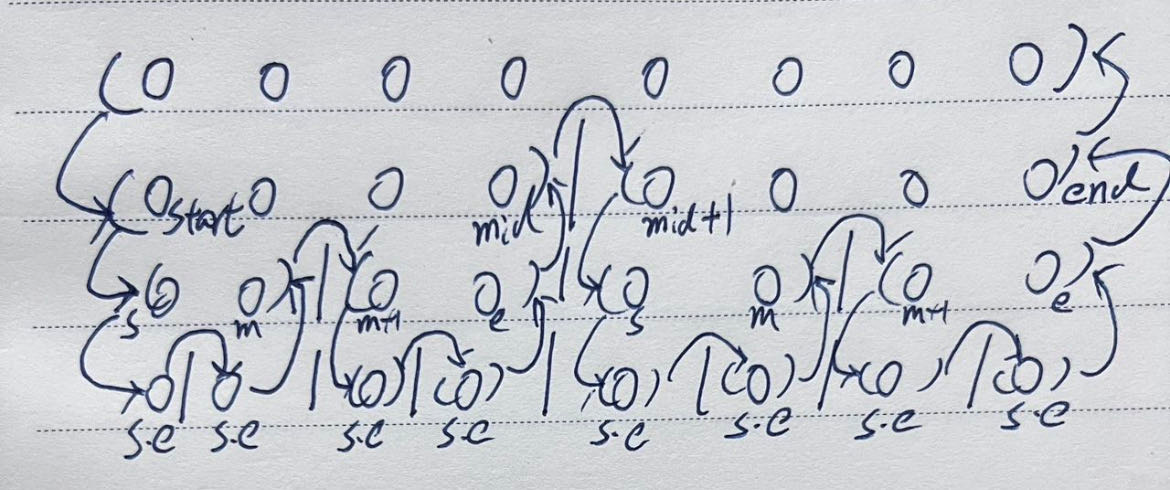 (0 0 0 0 0 0 0 0)
(0 start 0 0 0 mid) (0 mid+1 0 0 0) end
(0 s 0 m) (0 m+1 0 e) (0 s 0 m) (0 m+1 0 e)
0 0 (0) (0) (0) (0) (0) (0)
s.e s.e s.e s.e s.e s.e s.e s.e